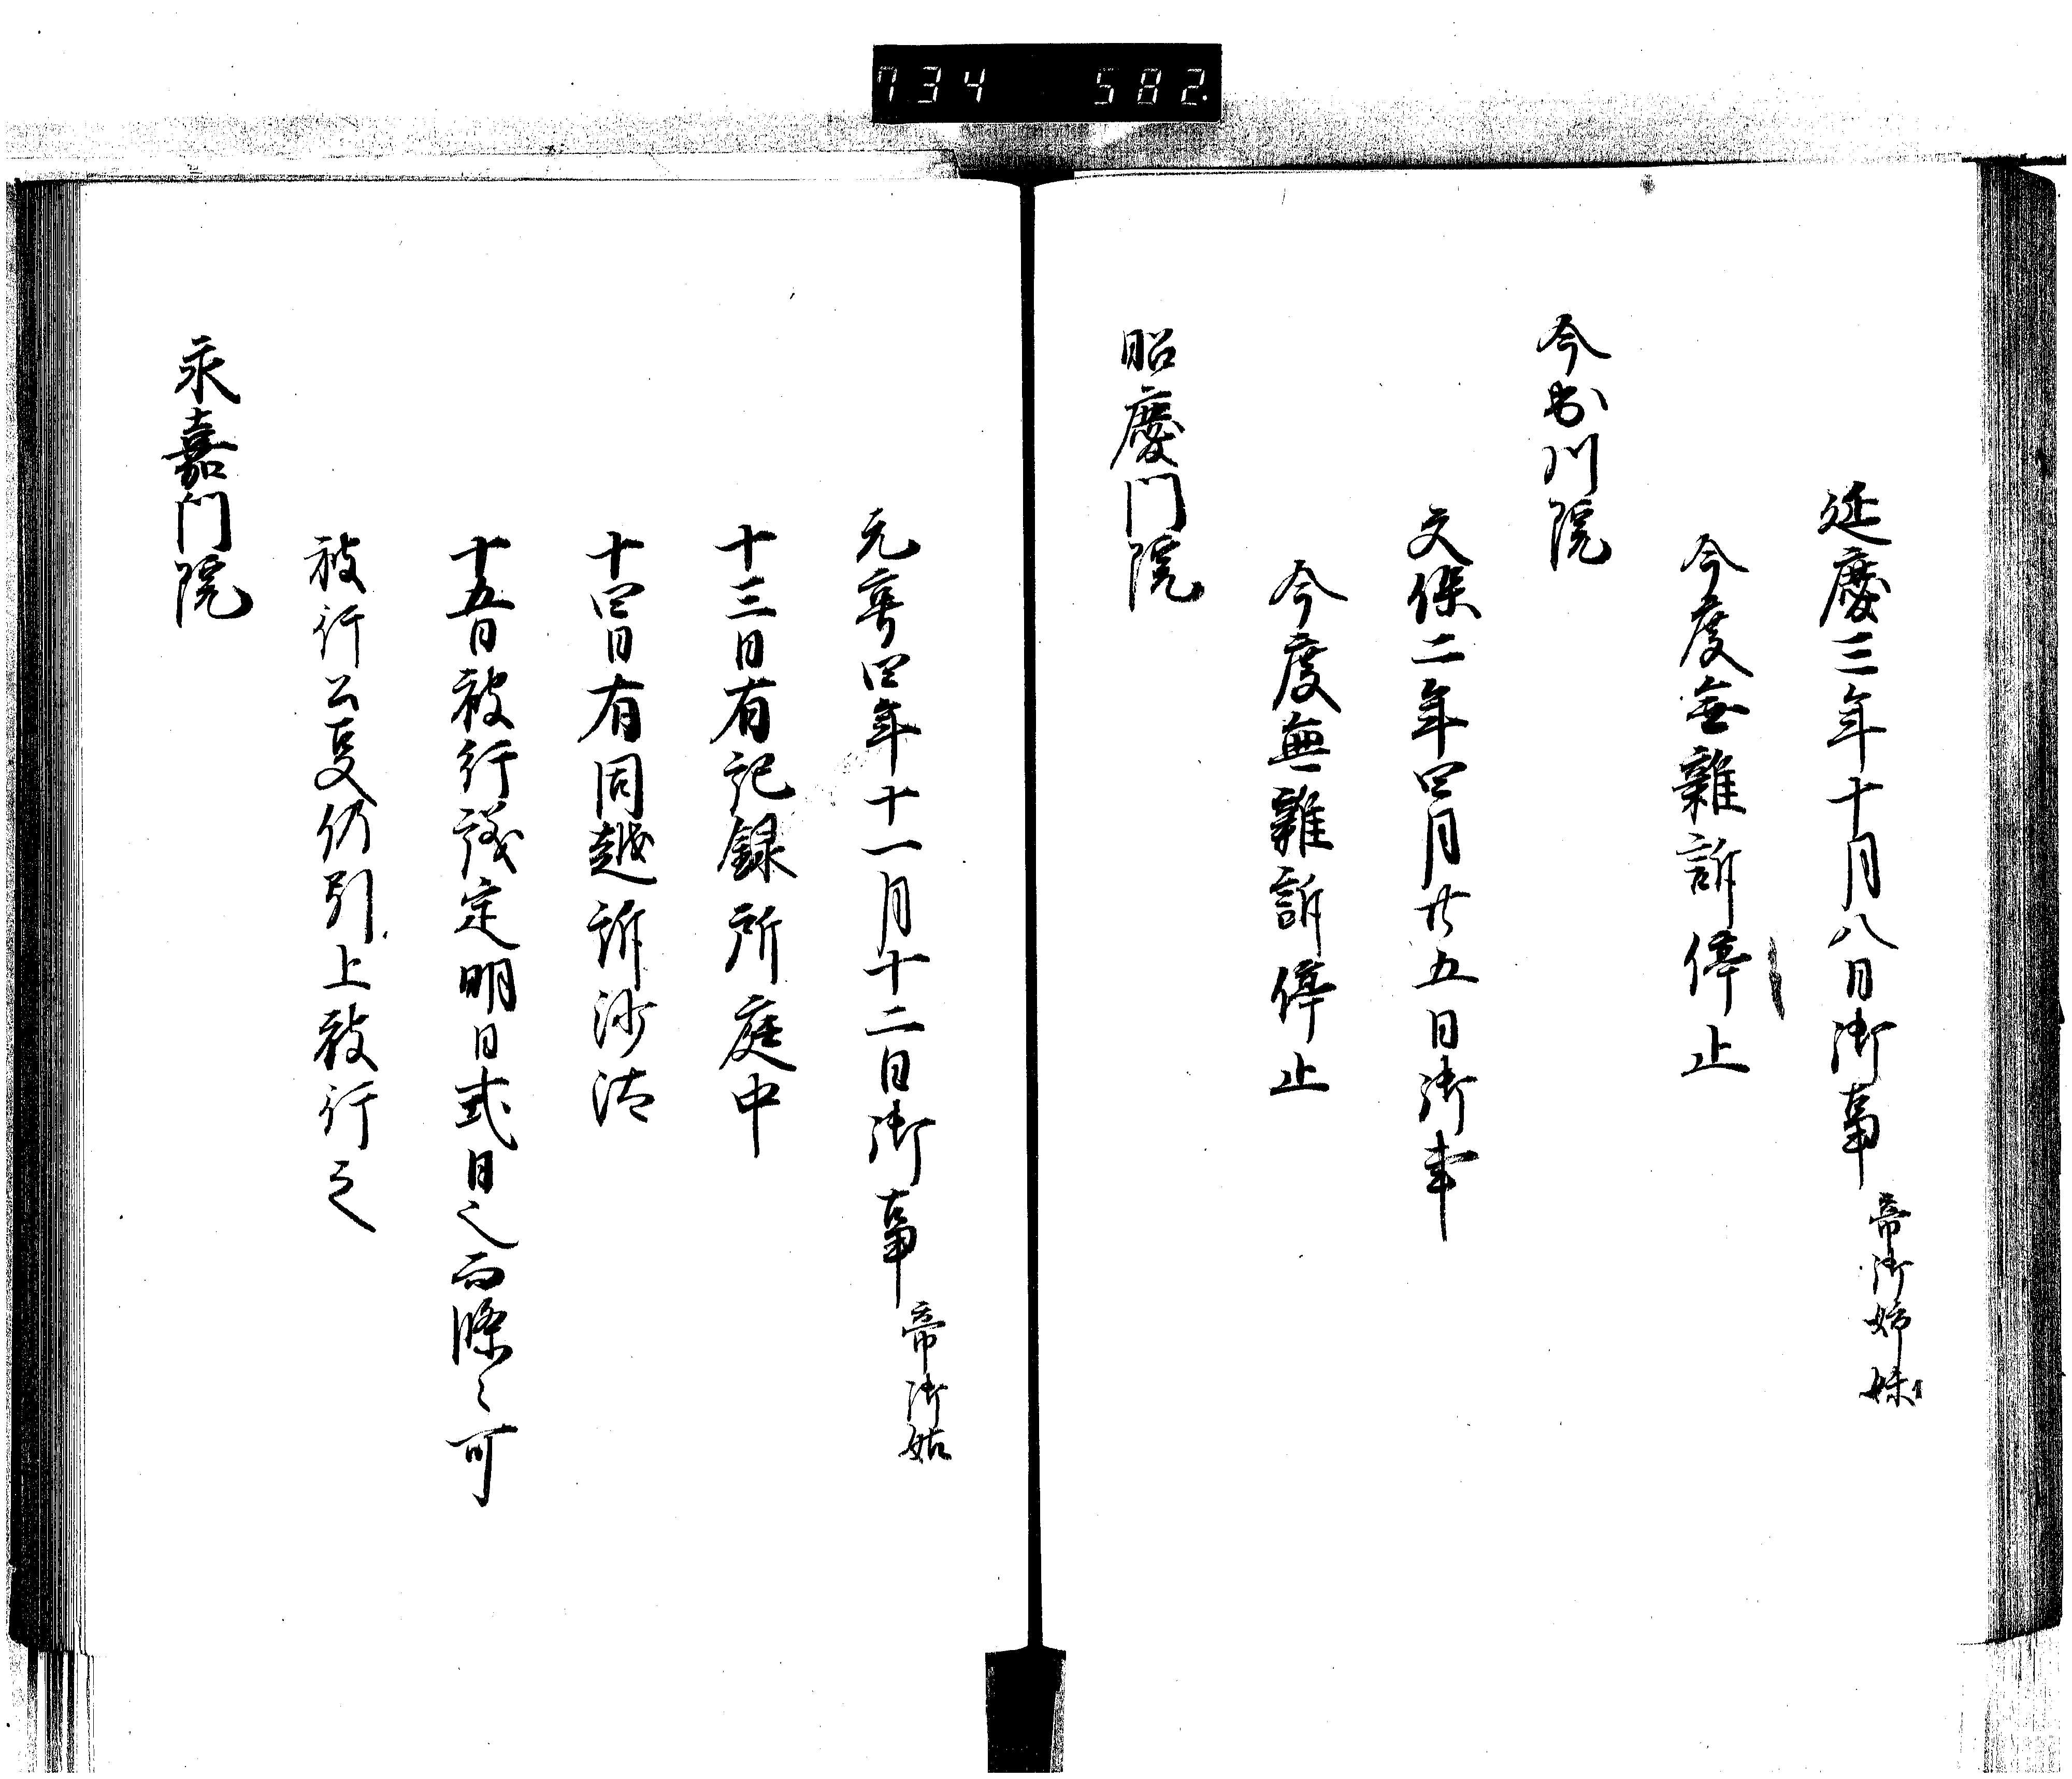 734 582
延慶三年十月八日御事 帝御姉妹
今度無雑訴停止
今出川院
文保二年四月廿五日御事
今度無雑訴停止
昭慶門院
元亨四年十一月十二日御事 帝御姑
十三日有記録所庭中
十四日有同越訴沙汰
十五日被行議定明日式日也而條々可
被行公事仍引上被行之
永嘉門院